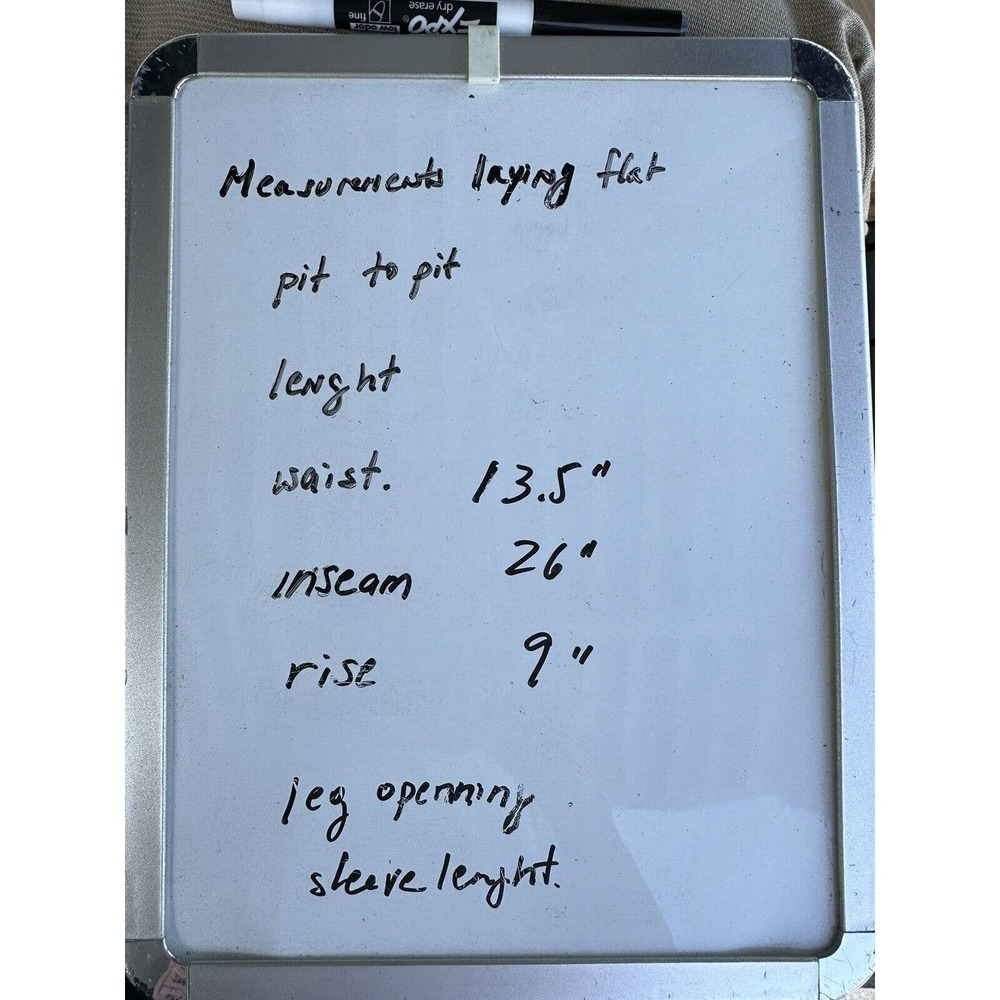 EXPO® dry erase
low odor
fine
Measurements laying flat
pit to pit
lenght
waist. 13.5"
inseam 26"
rise 9"
leg openning
sleeve lenght.